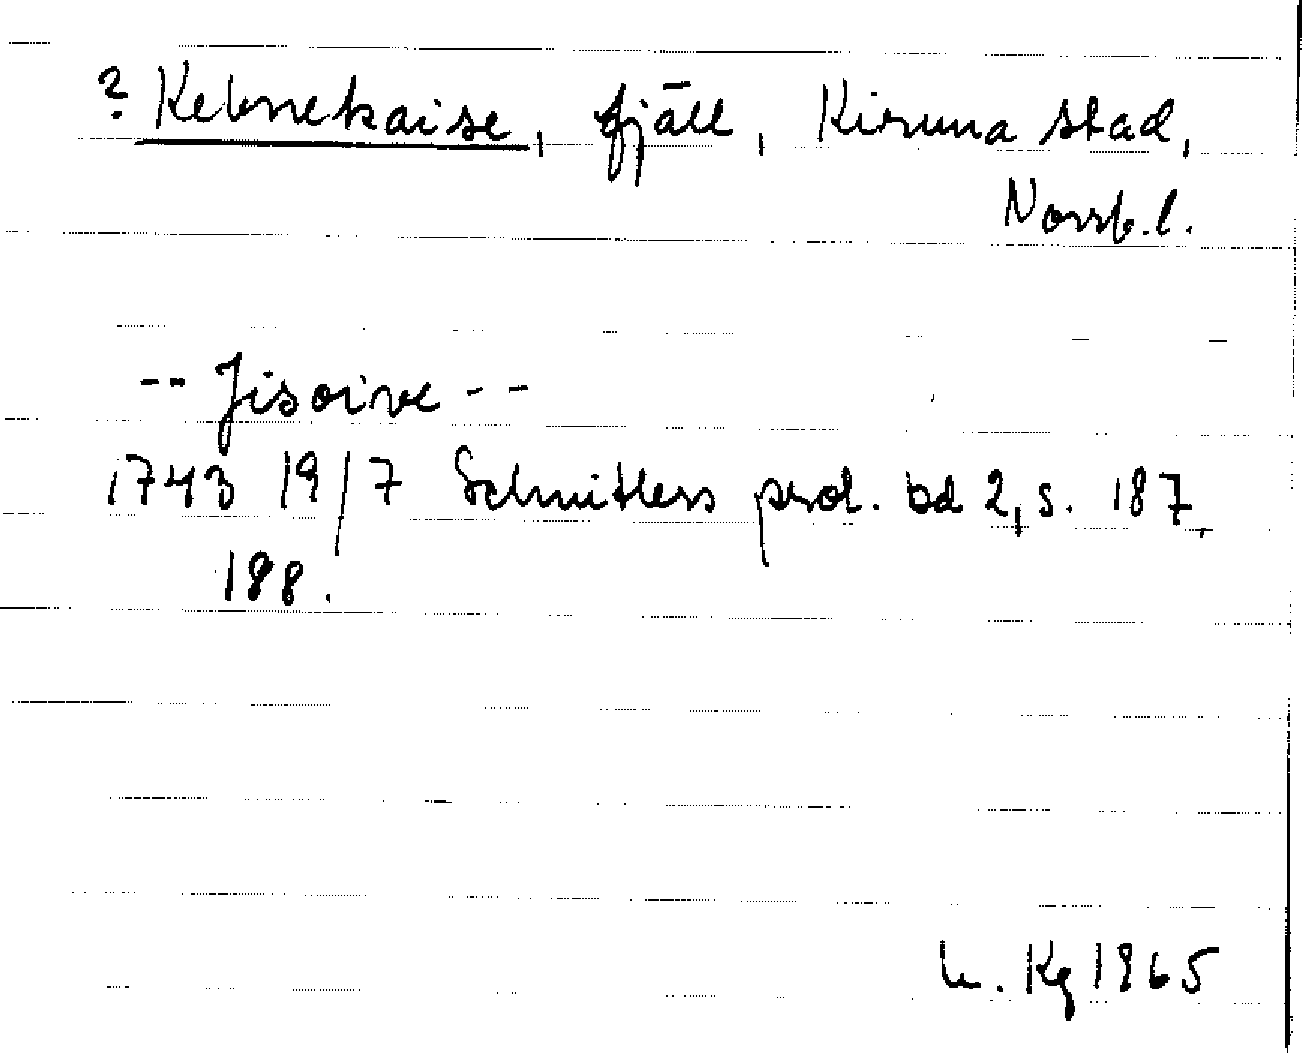 ? Kebnekaise, fjäll, Kiruna stad,
Norrb.l.
-- Jisoive --
1743 19/7 Schnitlers prot. bd 2, s. 187,
188.
Kg 1965